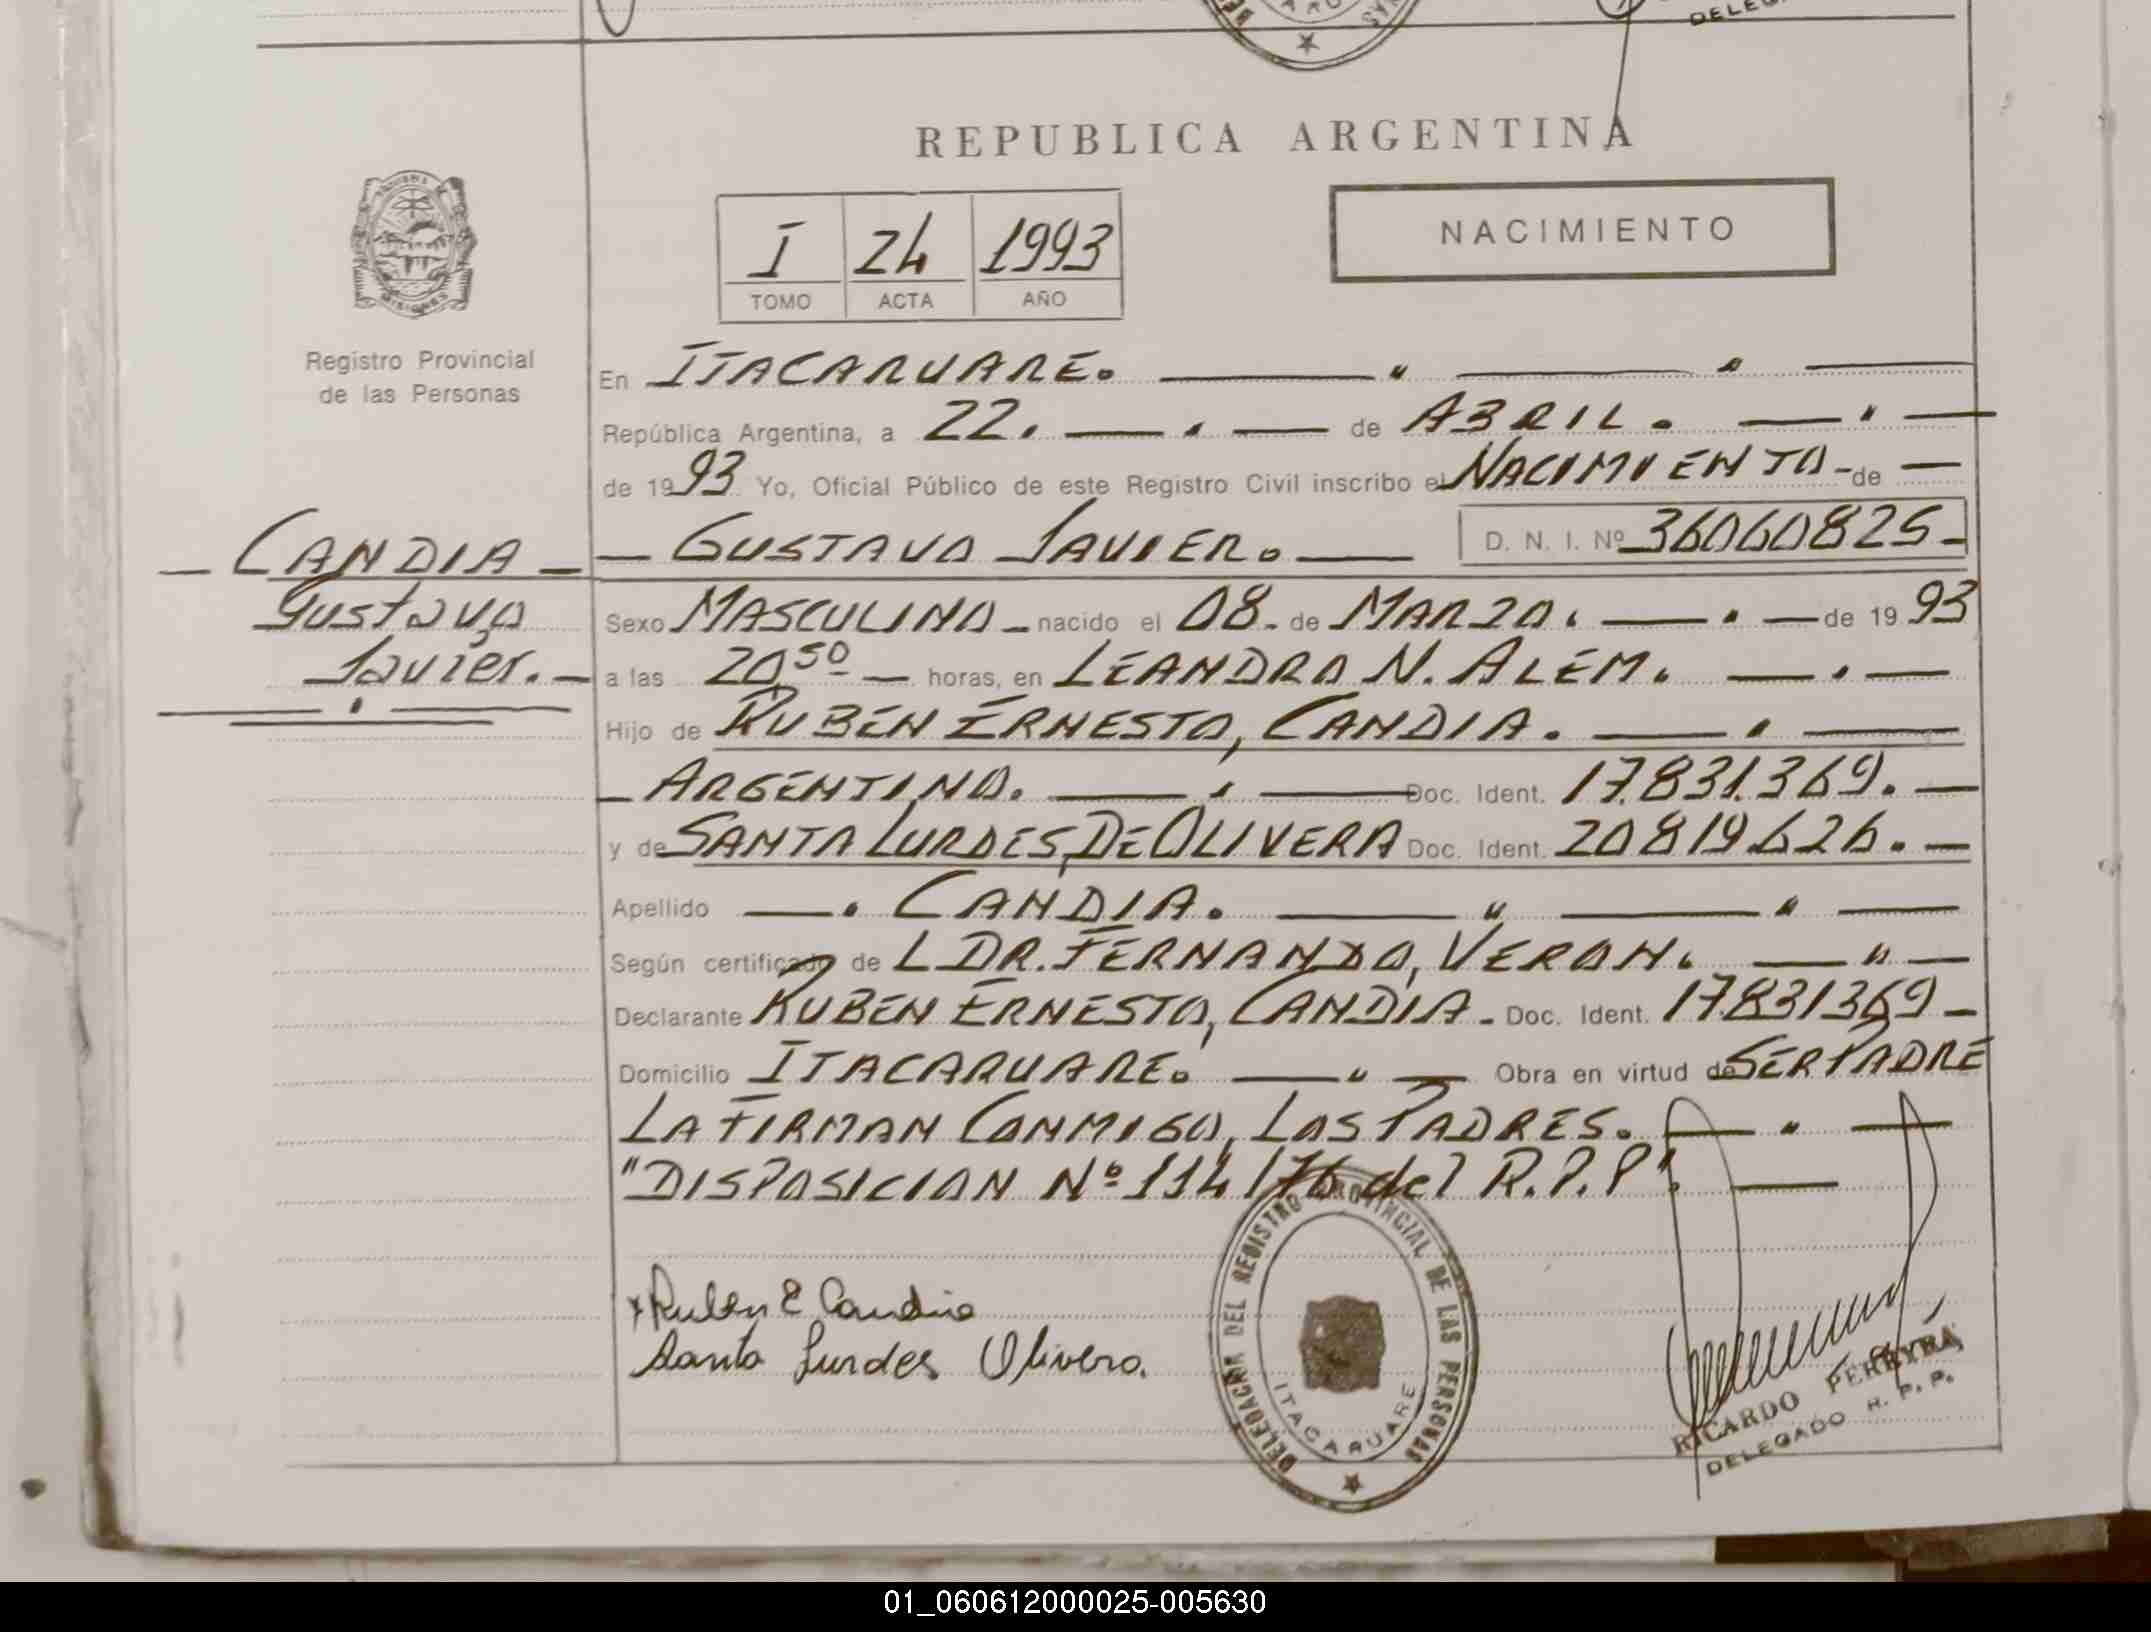 DELEGA
REPUBLICA ARGENTINA
I 24 1993
TOMO ACTA AÑO
NACIMIENTO
MISIONES
Registro Provincial
de las Personas
En ITACARUARE.
República Argentina, a 22. de ABRIL.
de 1993 Yo, Oficial Público de este Registro Civil inscribo el NACIMIENTO de
CANDIA
Gustavo
Javier.
GUSTAVO JAVIER. D. N. I. Nº 36060825
Sexo MASCULINO nacido el 08 de MARZO. de 1993
a las 20,50 horas, en LEANDRO N. ALEM.
Hijo de RUBEN ERNESTO, CANDIA.
ARGENTINO. Doc. Ident. 17.831.369.
y de SANTA LURDES, DE OLIVERA Doc. Ident. 20819.626.
Apellido CANDIA.
Según certificado de L DR. FERNANDO, VERON.
Declarante RUBEN ERNESTO, CANDIA. Doc. Ident. 17831369
Domicilio ITACARUARE. Obra en virtud de SER PADRE
LA FIRMAN CONMIGO, LOS PADRES.
"DISPOSICION Nº 114/76 del R.P.P".
Ruben E Candia
Santa Lurdes Olivera.
DELEGACION DEL REGISTRO PROVINCIAL DE LAS PERSONAS
ITACARUARE
RICARDO PEREYRA
DELEGADO R. P. P.
01_060612000025-005630